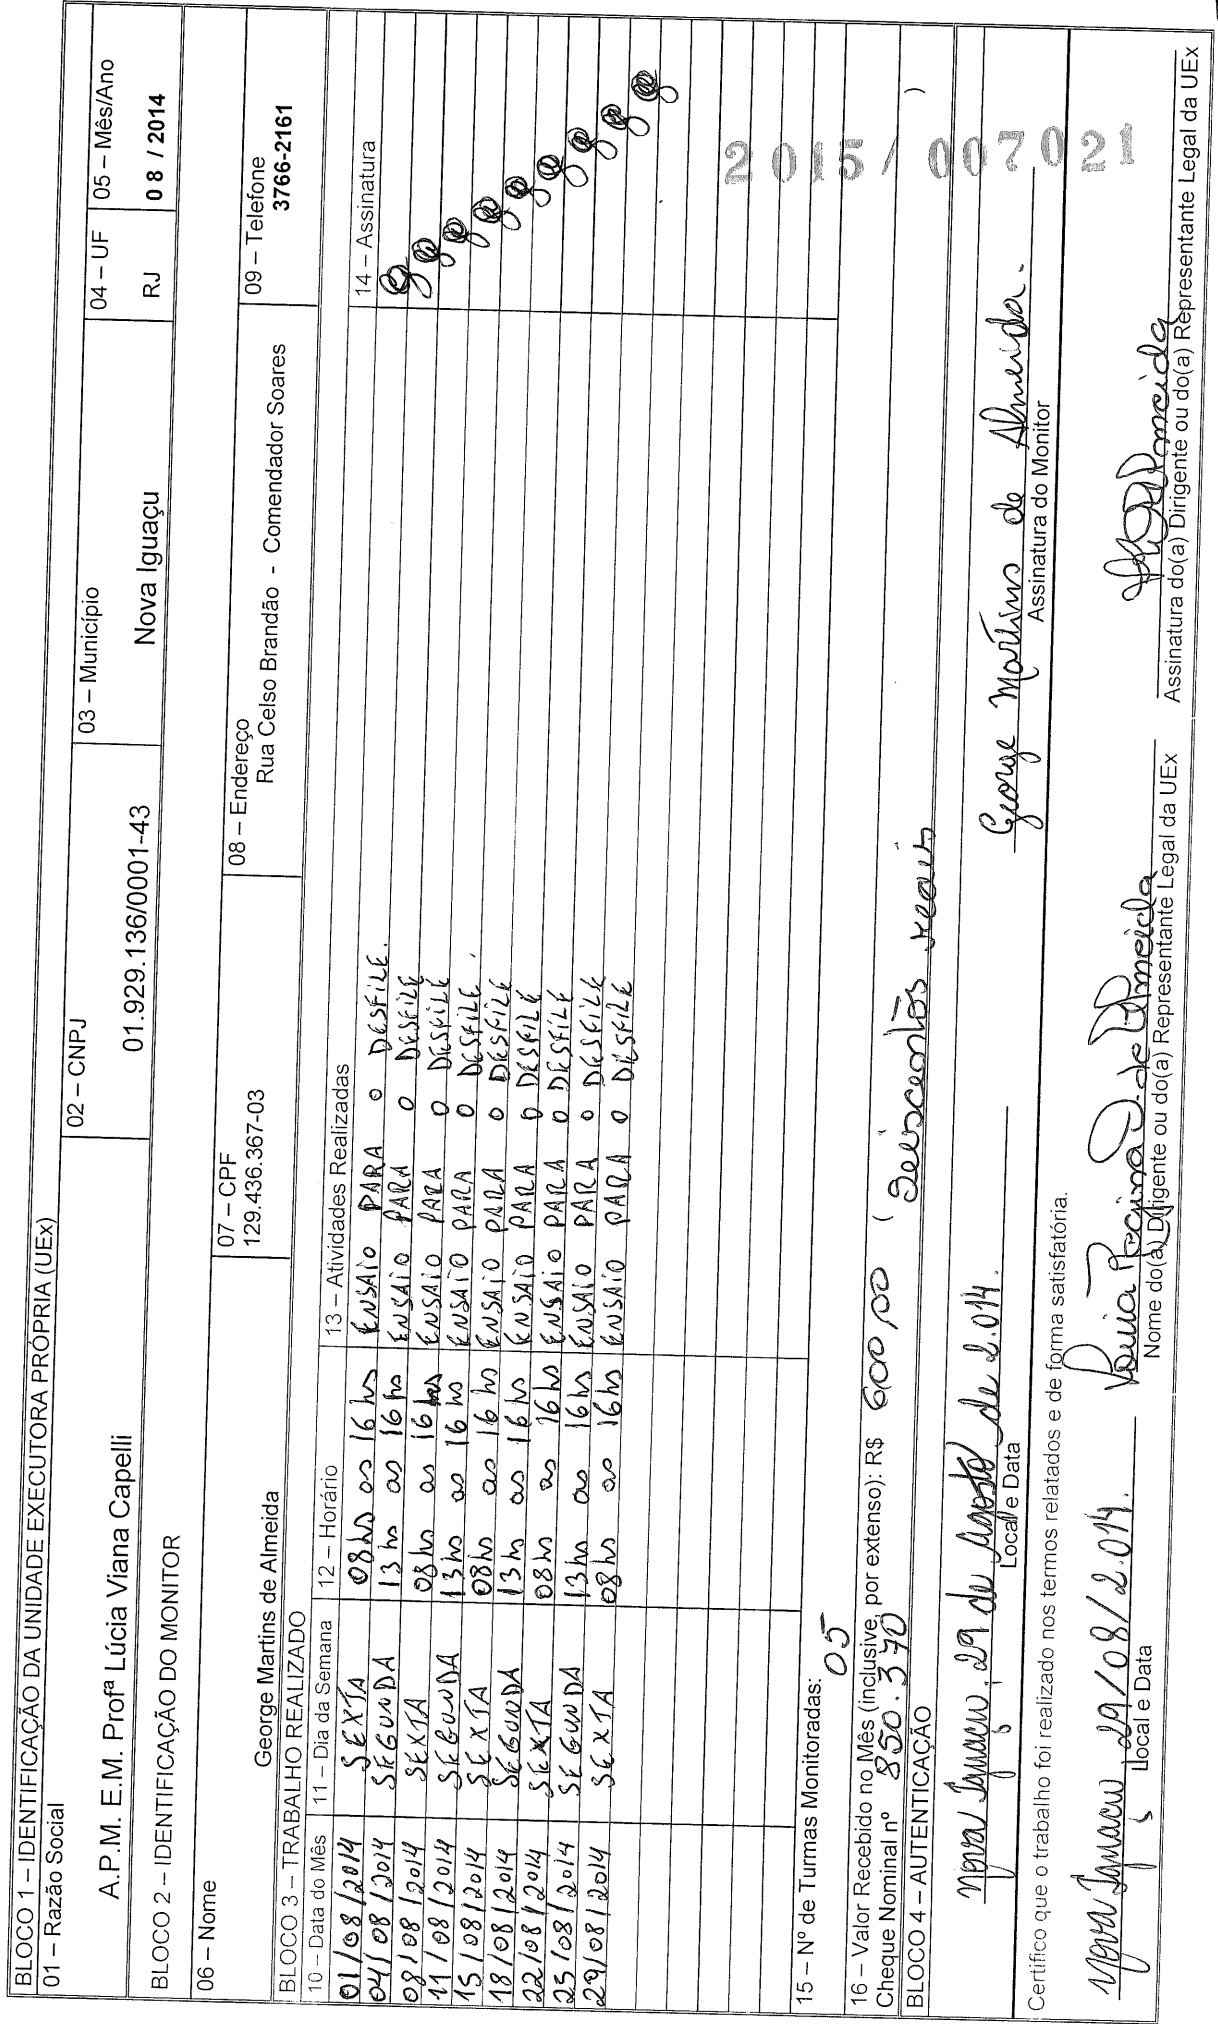 BLOCO 1 – IDENTIFICAÇÃO DA UNIDADE EXECUTORA PRÓPRIA (UEx)
01 – Razão Social
A.P.M. E.M. Profª Lúcia Viana Capelli
02 – CNPJ
01.929.136/0001-43
03 – Município
Nova Iguaçu
04 – UF
RJ
05 – Mês/Ano
08 / 2014
BLOCO 2 – IDENTIFICAÇÃO DO MONITOR
06 – Nome
George Martins de Almeida
07 – CPF
129.436.367-03
08 – Endereço
Rua Celso Brandão - Comendador Soares
09 – Telefone
3766-2161
BLOCO 3 – TRABALHO REALIZADO
10 – Data do Mês 11 – Dia da Semana 12 – Horário 13 – Atividades Realizadas 14 – Assinatura
01/08/2014 SEXTA 08hs as 16hs ENSAIO PARA O DESFILE.
04/08/2014 SEGUNDA 13hs as 16hs ENSAIO PARA O DESFILE
08/08/2014 SEXTA 08hs as 16hrs ENSAIO PARA O DESFILE
11/08/2014 SEGUNDA 13hs as 16hs ENSAIO PARA O DESFILE.
15/08/2014 SEXTA 08hs as 16hs ENSAIO PARA O DESFILE
18/08/2014 SEGUNDA 13hs as 16hs ENSAIO PARA O DESFILE
22/08/2014 SEXTA 08hs as 16hs ENSAIO PARA O DESFILE
25/08/2014 SEGUNDA 13hs as 16hs ENSAIO PARA O DESFILE
29/08/2014 SEXTA 08hs as 16hs ENSAIO PARA O DESFILE
15 – Nº de Turmas Monitoradas: 05
16 – Valor Recebido no Mês (inclusive, por extenso): R$ 600,00 ( Seiscentos reais )
Cheque Nominal nº 850.370
2015/007021
BLOCO 4 – AUTENTICAÇÃO
Nova Iguacu, 29 de Agosto de 2.014. George Martins de Almeida.
Local e Data Assinatura do Monitor
Certifico que o trabalho foi realizado nos termos relatados e de forma satisfatória.
Nova Iguacu, 29/08/2.014. Regina de Almeida
Local e Data Nome do(a) Dirigente ou do(a) Representante Legal da UEx Assinatura do(a) Dirigente ou do(a) Representante Legal da UEx